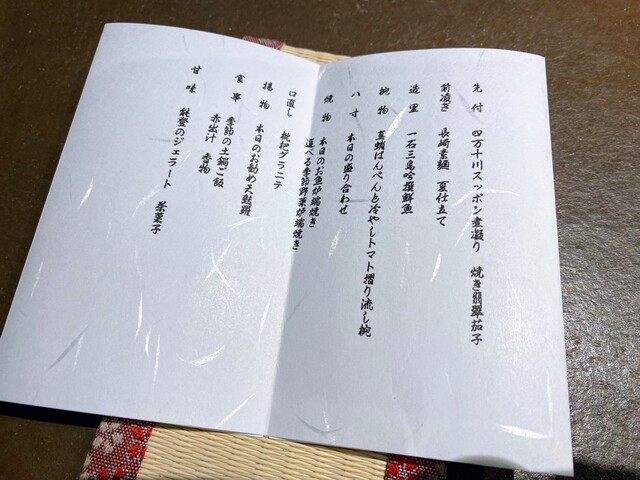 先付　四万十川スッポン煮凝り　焼き翡翠茄子
前凌ぎ　長崎素麺　夏仕立て
造里　一石三鳥吟撰鮮魚
椀物　真蛸はんぺんと冷やしトマト摺り流し椀
八寸　本日の盛り合わせ
焼物　本日のお魚炉端焼き
選べる季節野菜炉端焼き
口直し　枇杷グラニテ
揚物　本日のお勧め天麩羅
食事　季節の土鍋ご飯
赤出汁　香物
甘味　能登のジェラート　茶菓子